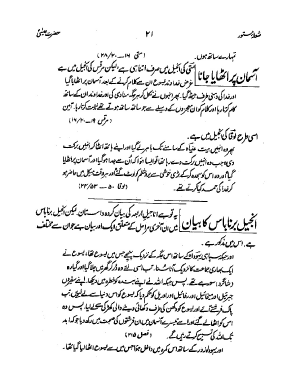 حضرت عیسیٰ ۲۱
تمہارے ساتھ ہوں۔ (متی ۱۶ - ۲۸/۲۰)
آسمان پر اٹھایا جانا متی کی انجیل میں صرف اتنا ہی ہے لیکن مرقس کی انجیل میں ہے
غرض خداوند یسوع ان سے کلام کرنے کے بعد آسمان پر اٹھایا گیا
اور خدا کی دہنی طرف بیٹھ گیا۔ پھر انہوں نے نکل کر ہر جگہ منادی کی اور خداوند ان کے ساتھ
کام کرتا رہا اور کلام کو ان معجزوں کے وسیلے سے جو ساتھ ساتھ ہوتے تھے ثابت کرتا رہا۔ آمین
(مرقس ۱۹ - ۱۶/۲۰)
اسی طرح لوقا کی انجیل میں ہے۔
پھر وہ انہیں بیت عنیاہ کے سامنے تک باہر لے گیا اور اپنے ہاتھ اٹھا کر انہیں برکت
دی۔ جب وہ انہیں برکت دے رہا تھا تو ایسا ہوا کہ ان سے جدا ہو گیا اور آسمان پر اٹھایا گیا
اور وہ اس کو سجدہ کر کے بڑی خوشی سے یروشلم کو لوٹ گئے اور ہر وقت ہیکل میں حاضر ہو
کر خدا کی حمد کیا کرتے تھے۔ (لوقا ۵۰ - ۲۴/۵۳)
انجیل برنا باس کا بیان یہ تو ہے اناجیل اربعہ کی بیان کردہ داستان۔ لیکن انجیل برنا باس
میں ان آخری مراحل کے متعلق ایک اور بیان ہے جو ان سے مختلف
ہے۔ اس میں مذکور ہے۔
اور جبکہ سپاہی یہودا کے ساتھ اس جگہ کے نزدیک پہنچے جس میں یسوع تھا، یسوع نے
ایک بھاری جماعت کا نزدیک آنا سنا۔ تب اسی لئے وہ ڈر کر گھر میں چلا گیا اور گیارہ
شاگرد سو رہے تھے۔ پس جبکہ اللہ نے اپنے بندہ پر خطرہ کو دیکھا اپنے فرشتوں
جبریل اور میخائیل اور رفائیل اور اوریل کو حکم دیا کہ یسوع کو اس دنیا سے لے لیویں تب
پاک فرشتے آئے اور یسوع کو دکھن کی طرف دکھائی دینے والی کھڑکی سے لے لیا۔ پس وہ
اس کو اٹھا لے گئے اور اسے تیسرے آسمان میں ان فرشتوں کی صحبت میں رکھ دیا جو کہ ابد
تک اللہ کی تسبیح کرتے رہیں گے۔ (فصل ۲۱۵)
اور یہودا زور کے ساتھ اس کمرہ میں داخل ہوا جس میں سے یسوع اٹھا لیا گیا تھا۔